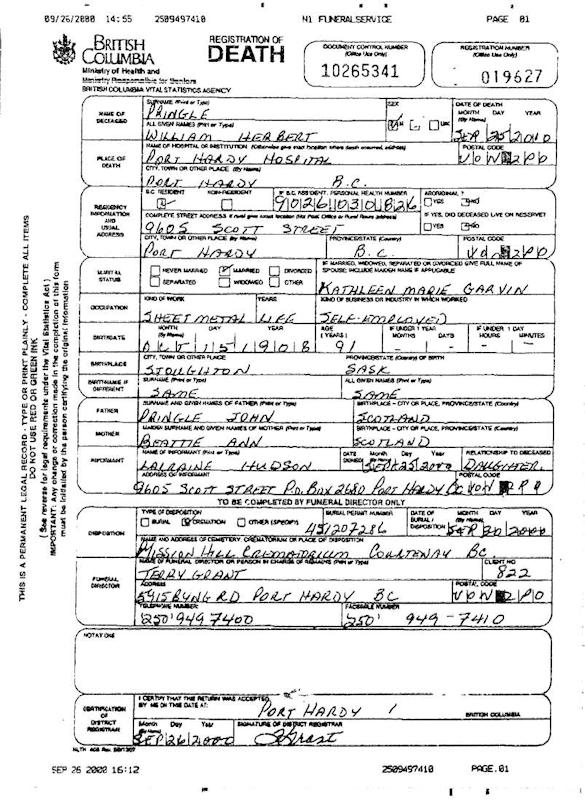 09/26/2000 14:55 2509497410 N1 FUNERALSERVICE PAGE 01
BRITISH COLUMBIA
REGISTRATION OF DEATH
DOCUMENT CONTROL NUMBER (Office Use Only)
10265341
REGISTRATION NUMBER (Office Use Only)
019627
Ministry of Health and
Ministry Responsible for Seniors
BRITISH COLUMBIA VITAL STATISTICS AGENCY
THIS IS A PERMANENT LEGAL RECORD - TYPE OR PRINT PLAINLY - COMPLETE ALL ITEMS
DO NOT USE RED OR GREEN INK
( See reverse for legal requirements under the Vital Statistics Act )
IMPORTANT: Any change or correction made in the completion of this form
must be initialled by the person certifying the original information
NAME OF DECEASED
SURNAME (Print or Type)
PRINGLE
SEX
M
DATE OF DEATH
MONTH DAY YEAR
(By Name)
SEP 25 2000
ALL GIVEN NAMES (Print or Type)
WILLIAM HERBERT
PLACE OF DEATH
NAME OF HOSPITAL OR INSTITUTION (Otherwise give exact location where death occurred, address)
PORT HARDY HOSPITAL
POSTAL CODE
V0N 2P0
CITY, TOWN OR OTHER PLACE (By Name)
PORT HARDY B.C.
RESIDENCY INFORMATION AND USUAL ADDRESS
B.C. RESIDENT NON-RESIDENT
IF B.C. RESIDENT, PERSONAL HEALTH NUMBER
902610301826
ABORIGINAL ?
YES NO
COMPLETE STREET ADDRESS If rural give exact location (Not Post Office or Rural Route address)
9605 SCOTT STREET
IF YES, DID DECEASED LIVE ON RESERVE?
YES NO
CITY, TOWN OR OTHER PLACE (By Name)
PORT HARDY
PROVINCE/STATE (Country)
B.C.
POSTAL CODE
V0N 2P0
MARITAL STATUS
NEVER MARRIED MARRIED DIVORCED
SEPARATED WIDOWED OTHER
IF MARRIED, WIDOWED, SEPARATED OR DIVORCED GIVE FULL NAME OF
SPOUSE; INCLUDE MAIDEN NAME IF APPLICABLE
KATHLEEN MARIE GARVIN
OCCUPATION
KIND OF WORK YEARS
SHEET METAL LIFE
KIND OF BUSINESS OR INDUSTRY IN WHICH WORKED
SELF-EMPLOYED
BIRTHDATE
MONTH DAY YEAR
(By Name)
OCT 15 1908
AGE (YEARS)
91
IF UNDER 1 YEAR
MONTHS DAYS
IF UNDER 1 DAY
HOURS MINUTES
BIRTHPLACE
CITY, TOWN OR OTHER PLACE
STOUGHTON
PROVINCE/STATE (Country) OF BIRTH
SASK
BIRTHNAME IF DIFFERENT
SURNAME (Print or Type)
SAME
ALL GIVEN NAMES (Print or Type)
SAME
FATHER
SURNAME AND GIVEN NAMES OF FATHER (Print or Type)
PRINGLE JOHN
BIRTHPLACE - CITY OR PLACE, PROVINCE/STATE (Country)
SCOTLAND
MOTHER
MAIDEN SURNAME AND GIVEN NAMES OF MOTHER (Print or Type)
BEATTIE ANN
BIRTHPLACE - CITY OR PLACE, PROVINCE/STATE (Country)
SCOTLAND
INFORMANT
NAME OF INFORMANT (Print or Type)
LORRAINE HUDSON
DATE SIGNED
Month Day Year
SEP 25 2000
RELATIONSHIP TO DECEASED
DAUGHTER
ADDRESS OF INFORMANT
9605 SCOTT STREET P.O. BOX 2680 PORT HARDY BC
POSTAL CODE
V0N 2P0
TO BE COMPLETED BY FUNERAL DIRECTOR ONLY
DISPOSITION
TYPE OF DISPOSITION
BURIAL CREMATION OTHER (SPECIFY)
BURIAL PERMIT NUMBER
451207286
DATE OF BURIAL / DISPOSITION
Month Day Year
(By Name)
SEP 30 2000
NAME AND ADDRESS OF CEMETERY, CREMATORIUM OR PLACE OF DISPOSITION
MISSION HILL CREMATORIUM COURTENAY BC.
FUNERAL DIRECTOR
NAME OF FUNERAL DIRECTOR OR PERSON IN CHARGE OF REMAINS (Print or Type)
TERRY GRANT
CLIENT NO
822
ADDRESS
5915 BYNG RD PORT HARDY BC
POSTAL CODE
V0N 2P0
TELEPHONE NUMBER
250 949 7400
FACSIMILE NUMBER
250 949-7410
NOTATIONS
CERTIFICATION OF DISTRICT REGISTRAR
I CERTIFY THAT THIS RETURN WAS ACCEPTED
BY ME ON THIS DATE AT:
PORT HARDY
BRITISH COLUMBIA
Month Day Year
(By Name)
SEP 26 2000
SIGNATURE OF DISTRICT REGISTRAR
SEP 26 2000 16:12 2509497410 PAGE.01